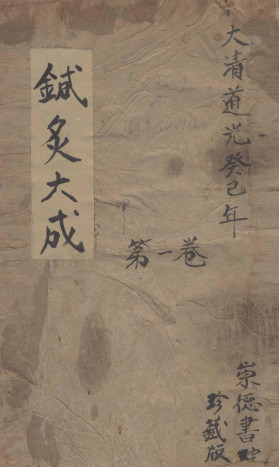 大清道光癸巳年
第一卷
鍼灸大成
崇德書院
珍藏版